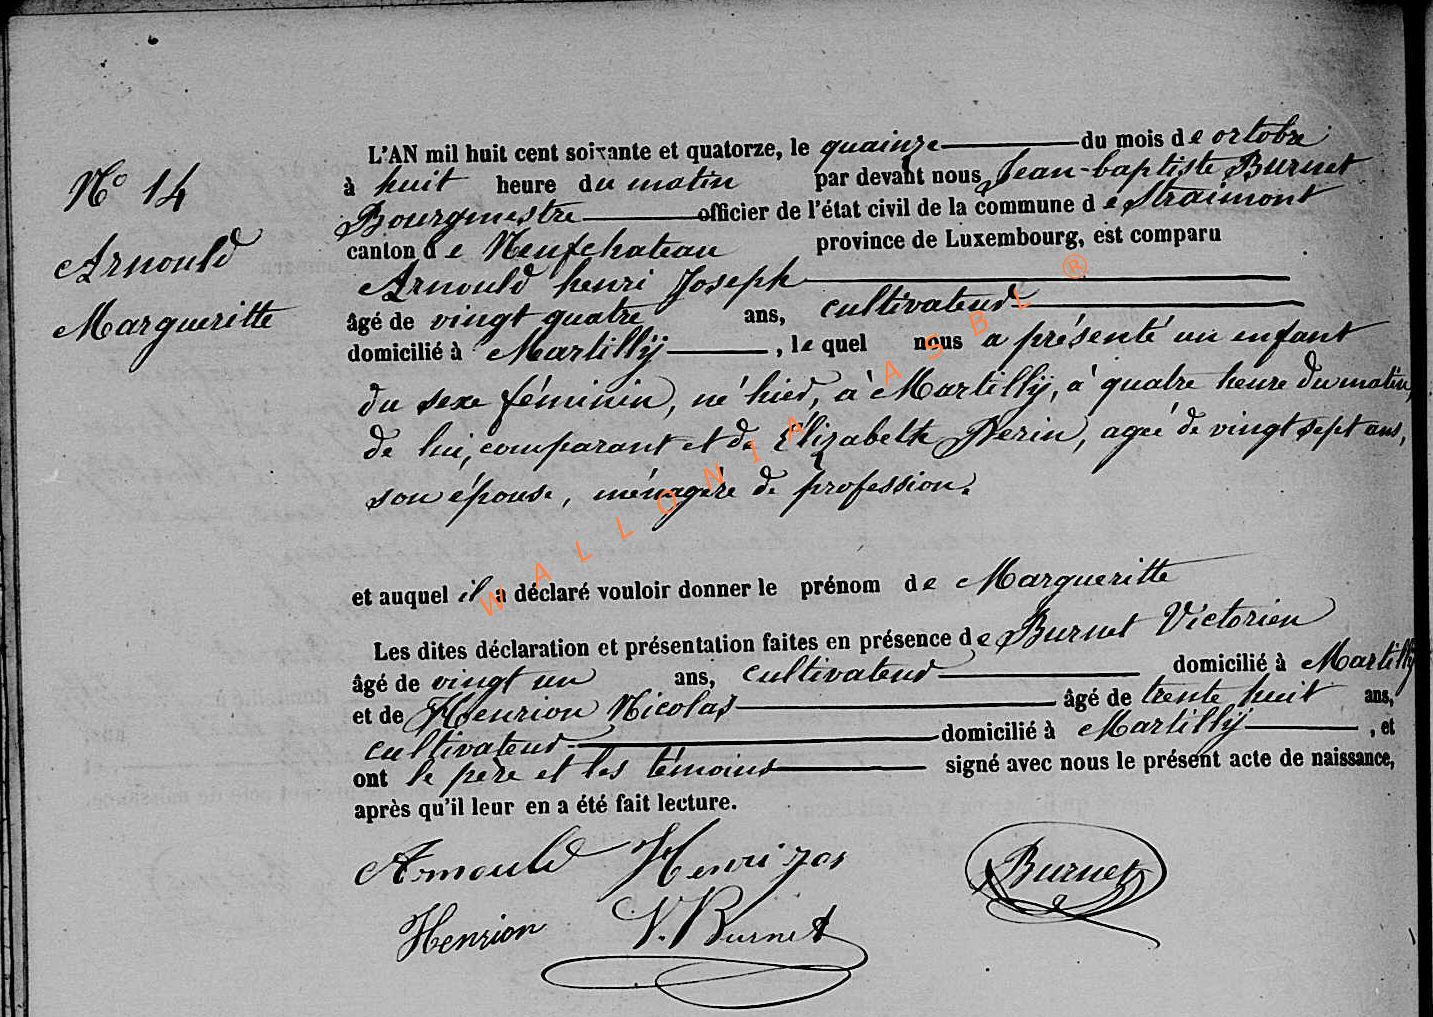 N° 14
Arnould
Margueritte
L'AN mil huit cent soixante et quatorze, le quainze du mois de octobre
à huit heure du matin par devant nous Jean-baptiste Burnet
Bourgmestre officier de l'état civil de la commune de Straimont
canton de Neufchateau province de Luxembourg, est comparu
Arnould henri Joseph
âgé de vingt quatre ans, cultivateur
domicilié à Martilly, le quel nous a présenté un enfant
du sexe féminin, né hier, à Martilly, à quatre heure du matin,
de lui, comparant et de Élizabeth Perin, agée de vingt sept ans,
son épouse, ménagère de profession.
et auquel il a déclaré vouloir donner le prénom de Margueritte
Les dites déclaration et présentation faites en présence de Burnet Victorien
âgé de vingt un ans, cultivateur domicilié à Martilly
et de Henrion Nicolas âgé de trente huit ans,
cultivateur domicilié à Martilly, et
ont le père et les témoins signé avec nous le présent acte de naissance,
après qu'il leur en a été fait lecture.
Arnould Henri Jos Burnet
Henrion V. Burnet
WALLONIA ASBL ®